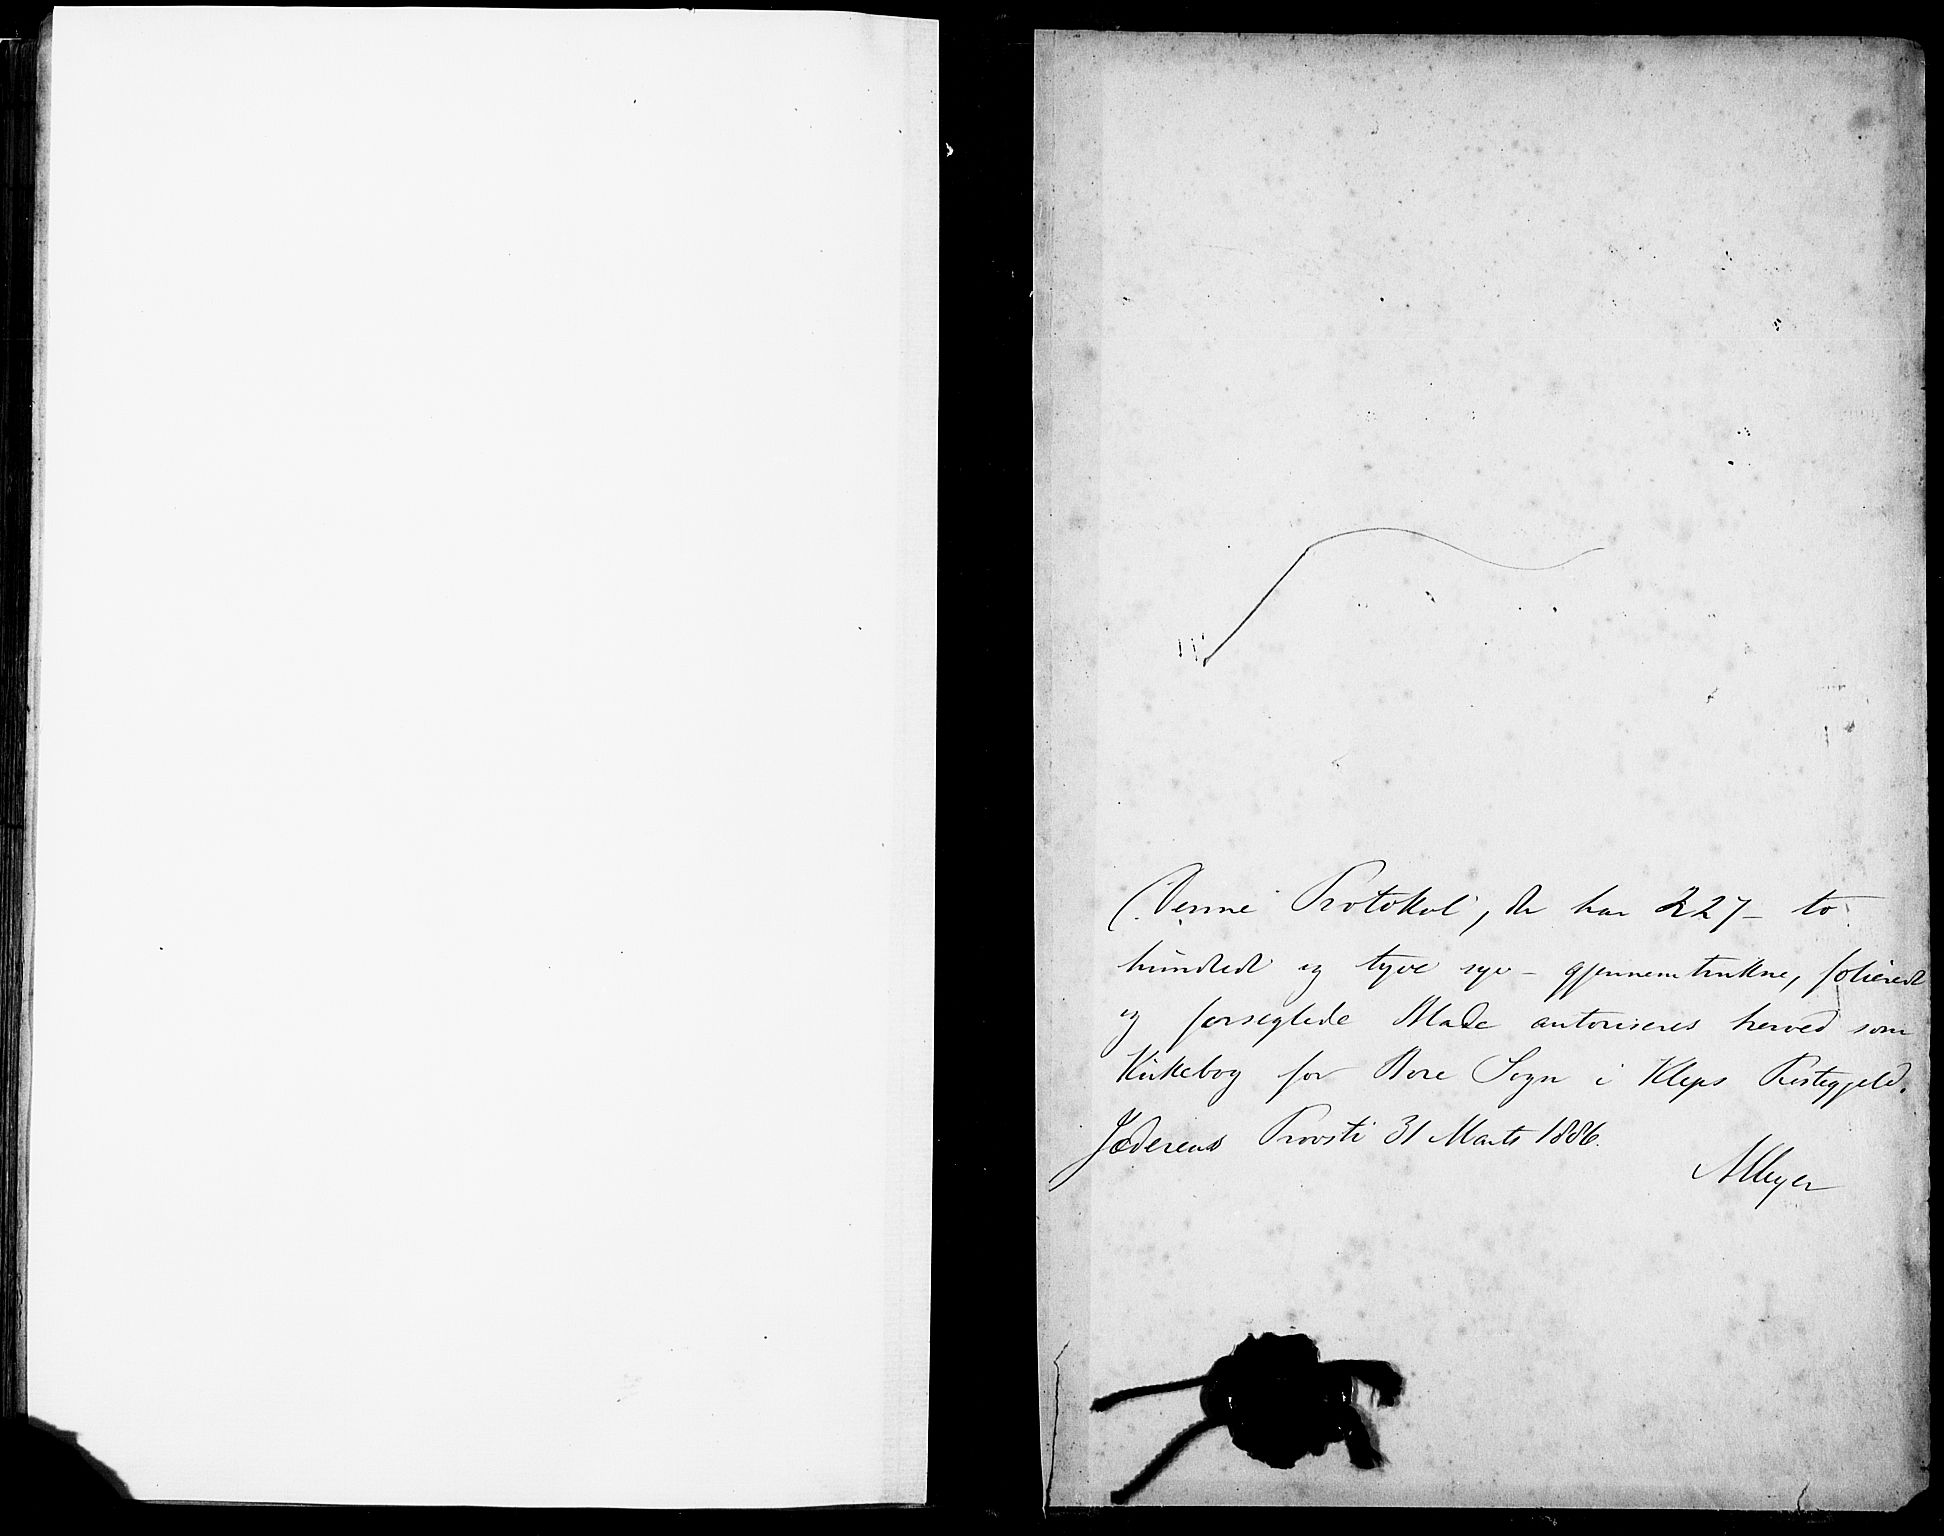 Denne Protokol, der har 227 – to
hundrede og tyve syv – gjennemtrukne, folierede
og forseglede Blade autoriseres herved som
Kirkebog for Bore Sogn i Kleps Præstegjeld.
Jæderens Provsti 31 Marts 1886.
AMeyer